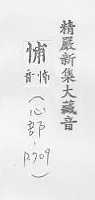 精嚴新集大藏音
悑
音怖
(心部,
P.709)